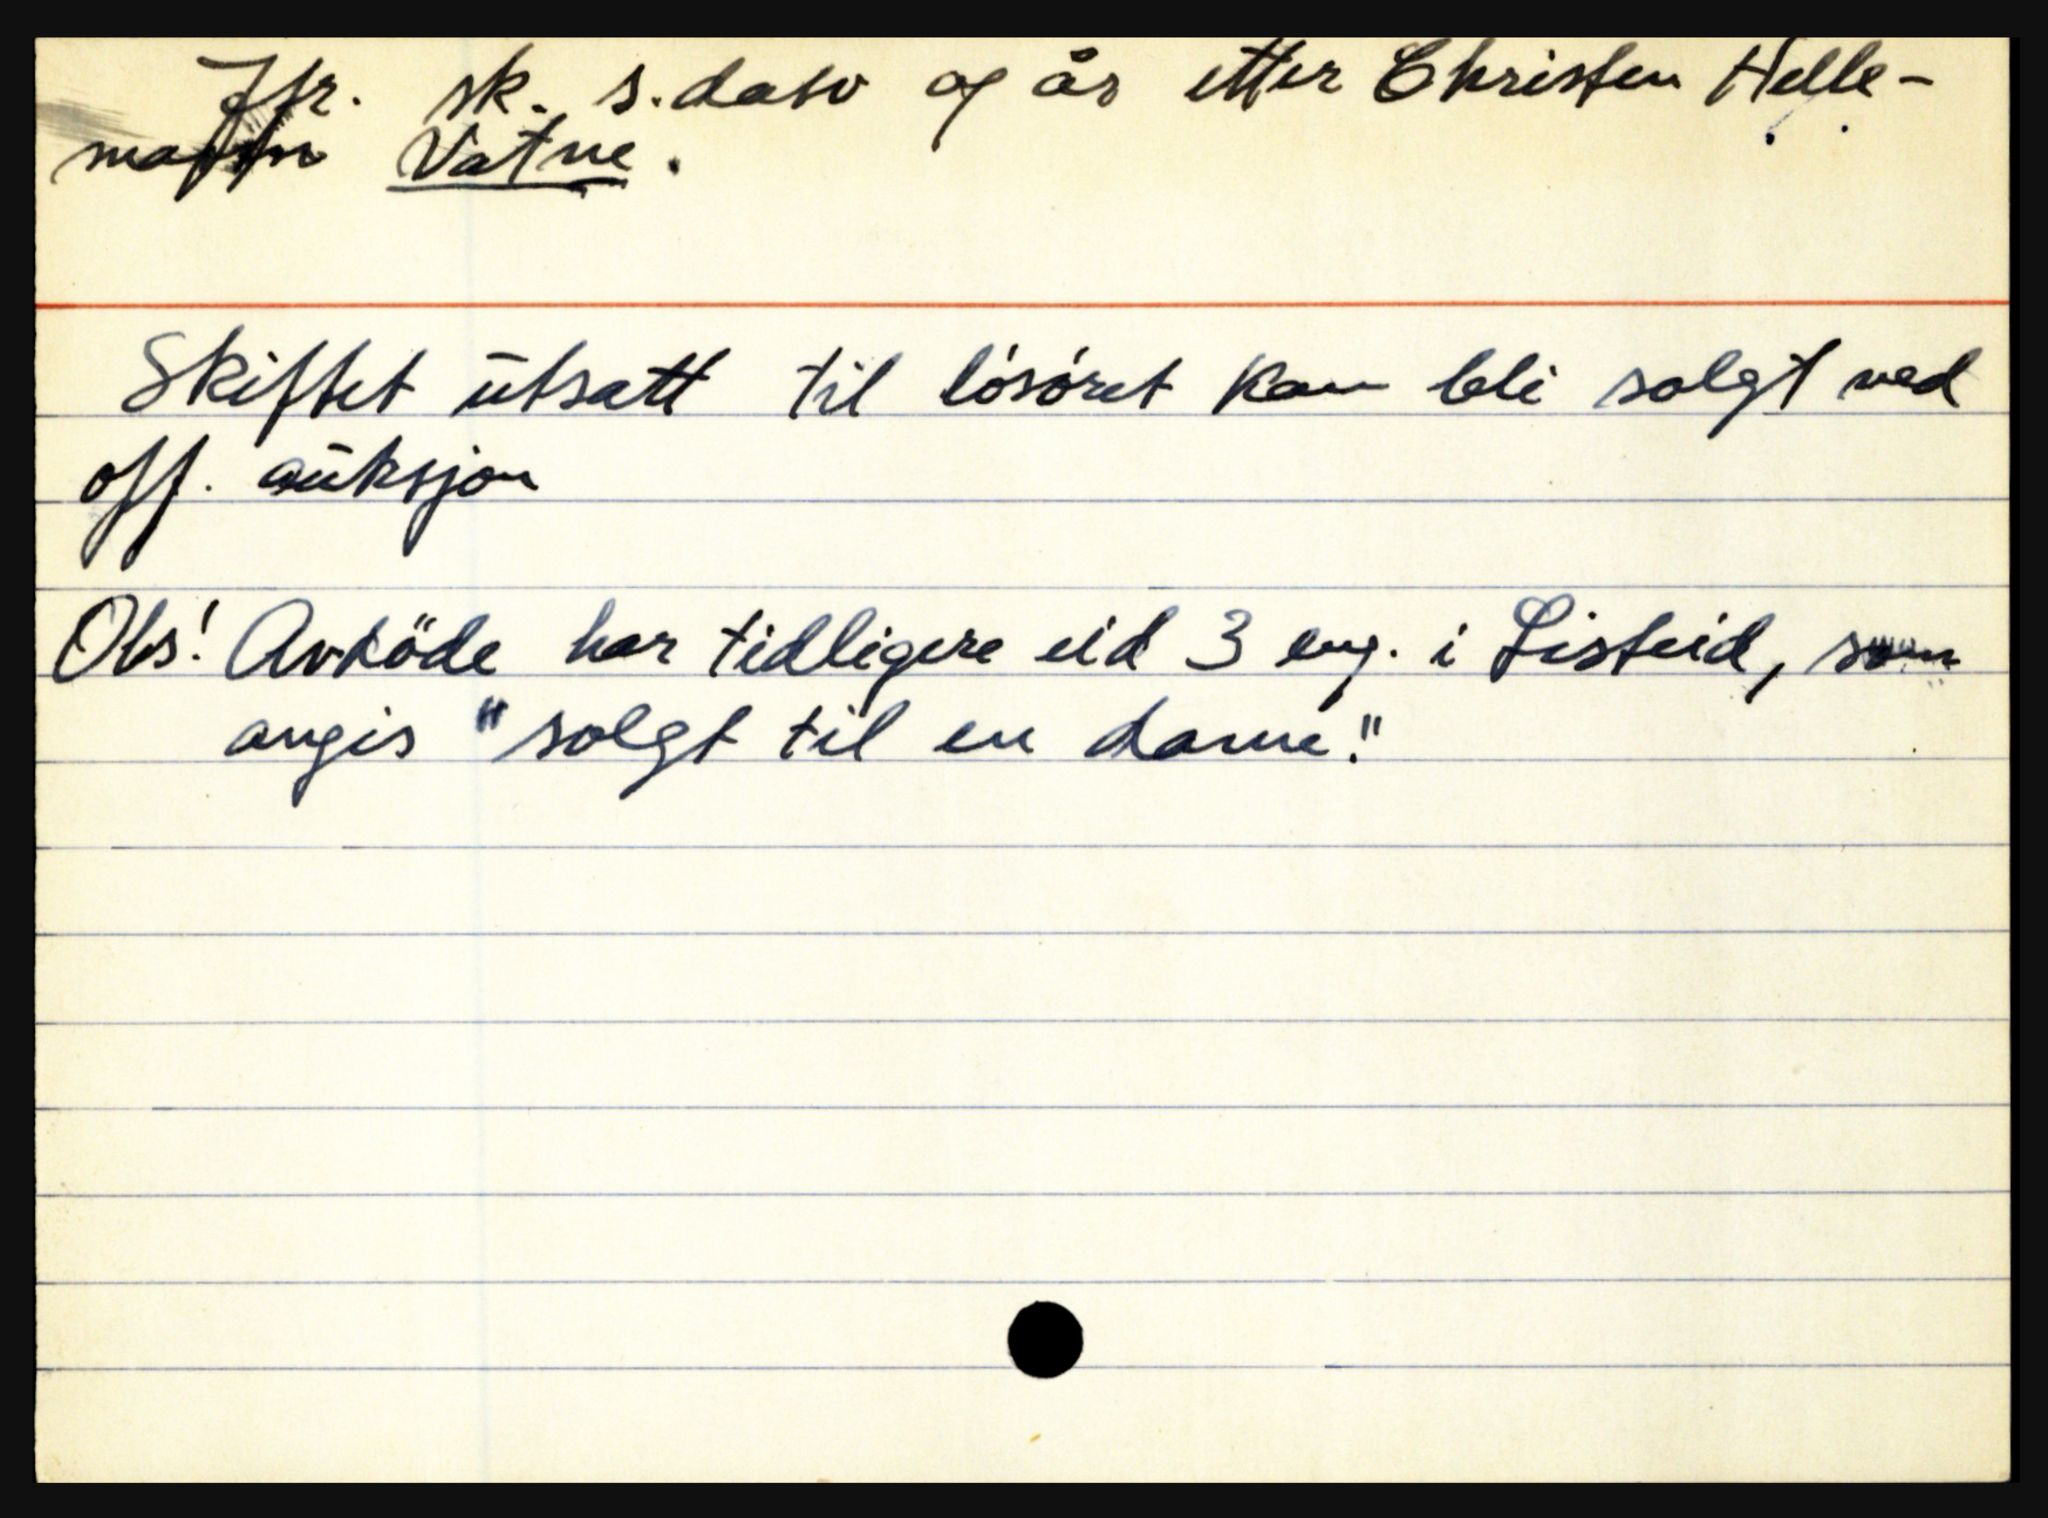 Jfr. sk. s. dato og år etter Christen Helle-
Vatne.
Skiftet utsatt til lósóret kan bli solgt ved
off. auksjon
Obs! Avdöde har tidligere eid 3 eng. i Listeid, som
angis "solgt til en dame."